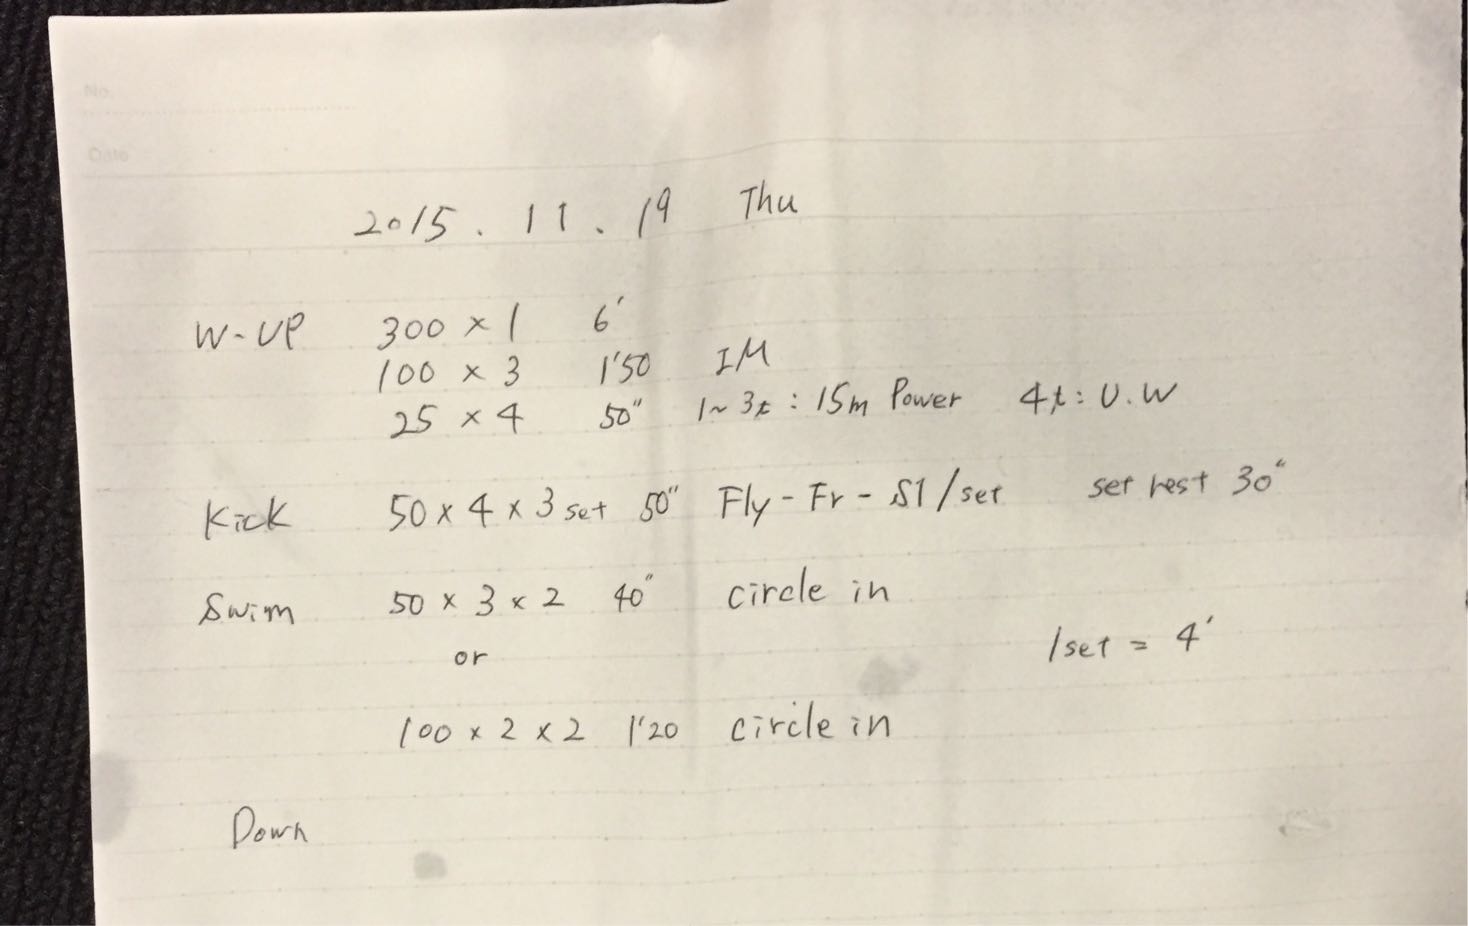 No.
Date
2015. 11. 19 Thu
W-UP 300 × 1 6'
100 × 3 1'50 IM
25 × 4 50" 1~3t: 15m Power 4t: U.W
Kick 50 × 4 × 3 set 50" Fly - Fr - S1/set set rest 30"
Swim 50 × 3 × 2 40" circle in
or 1set = 4'
100 × 2 × 2 1'20 circle in
Down